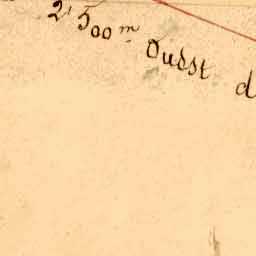 2,500m Ouest d